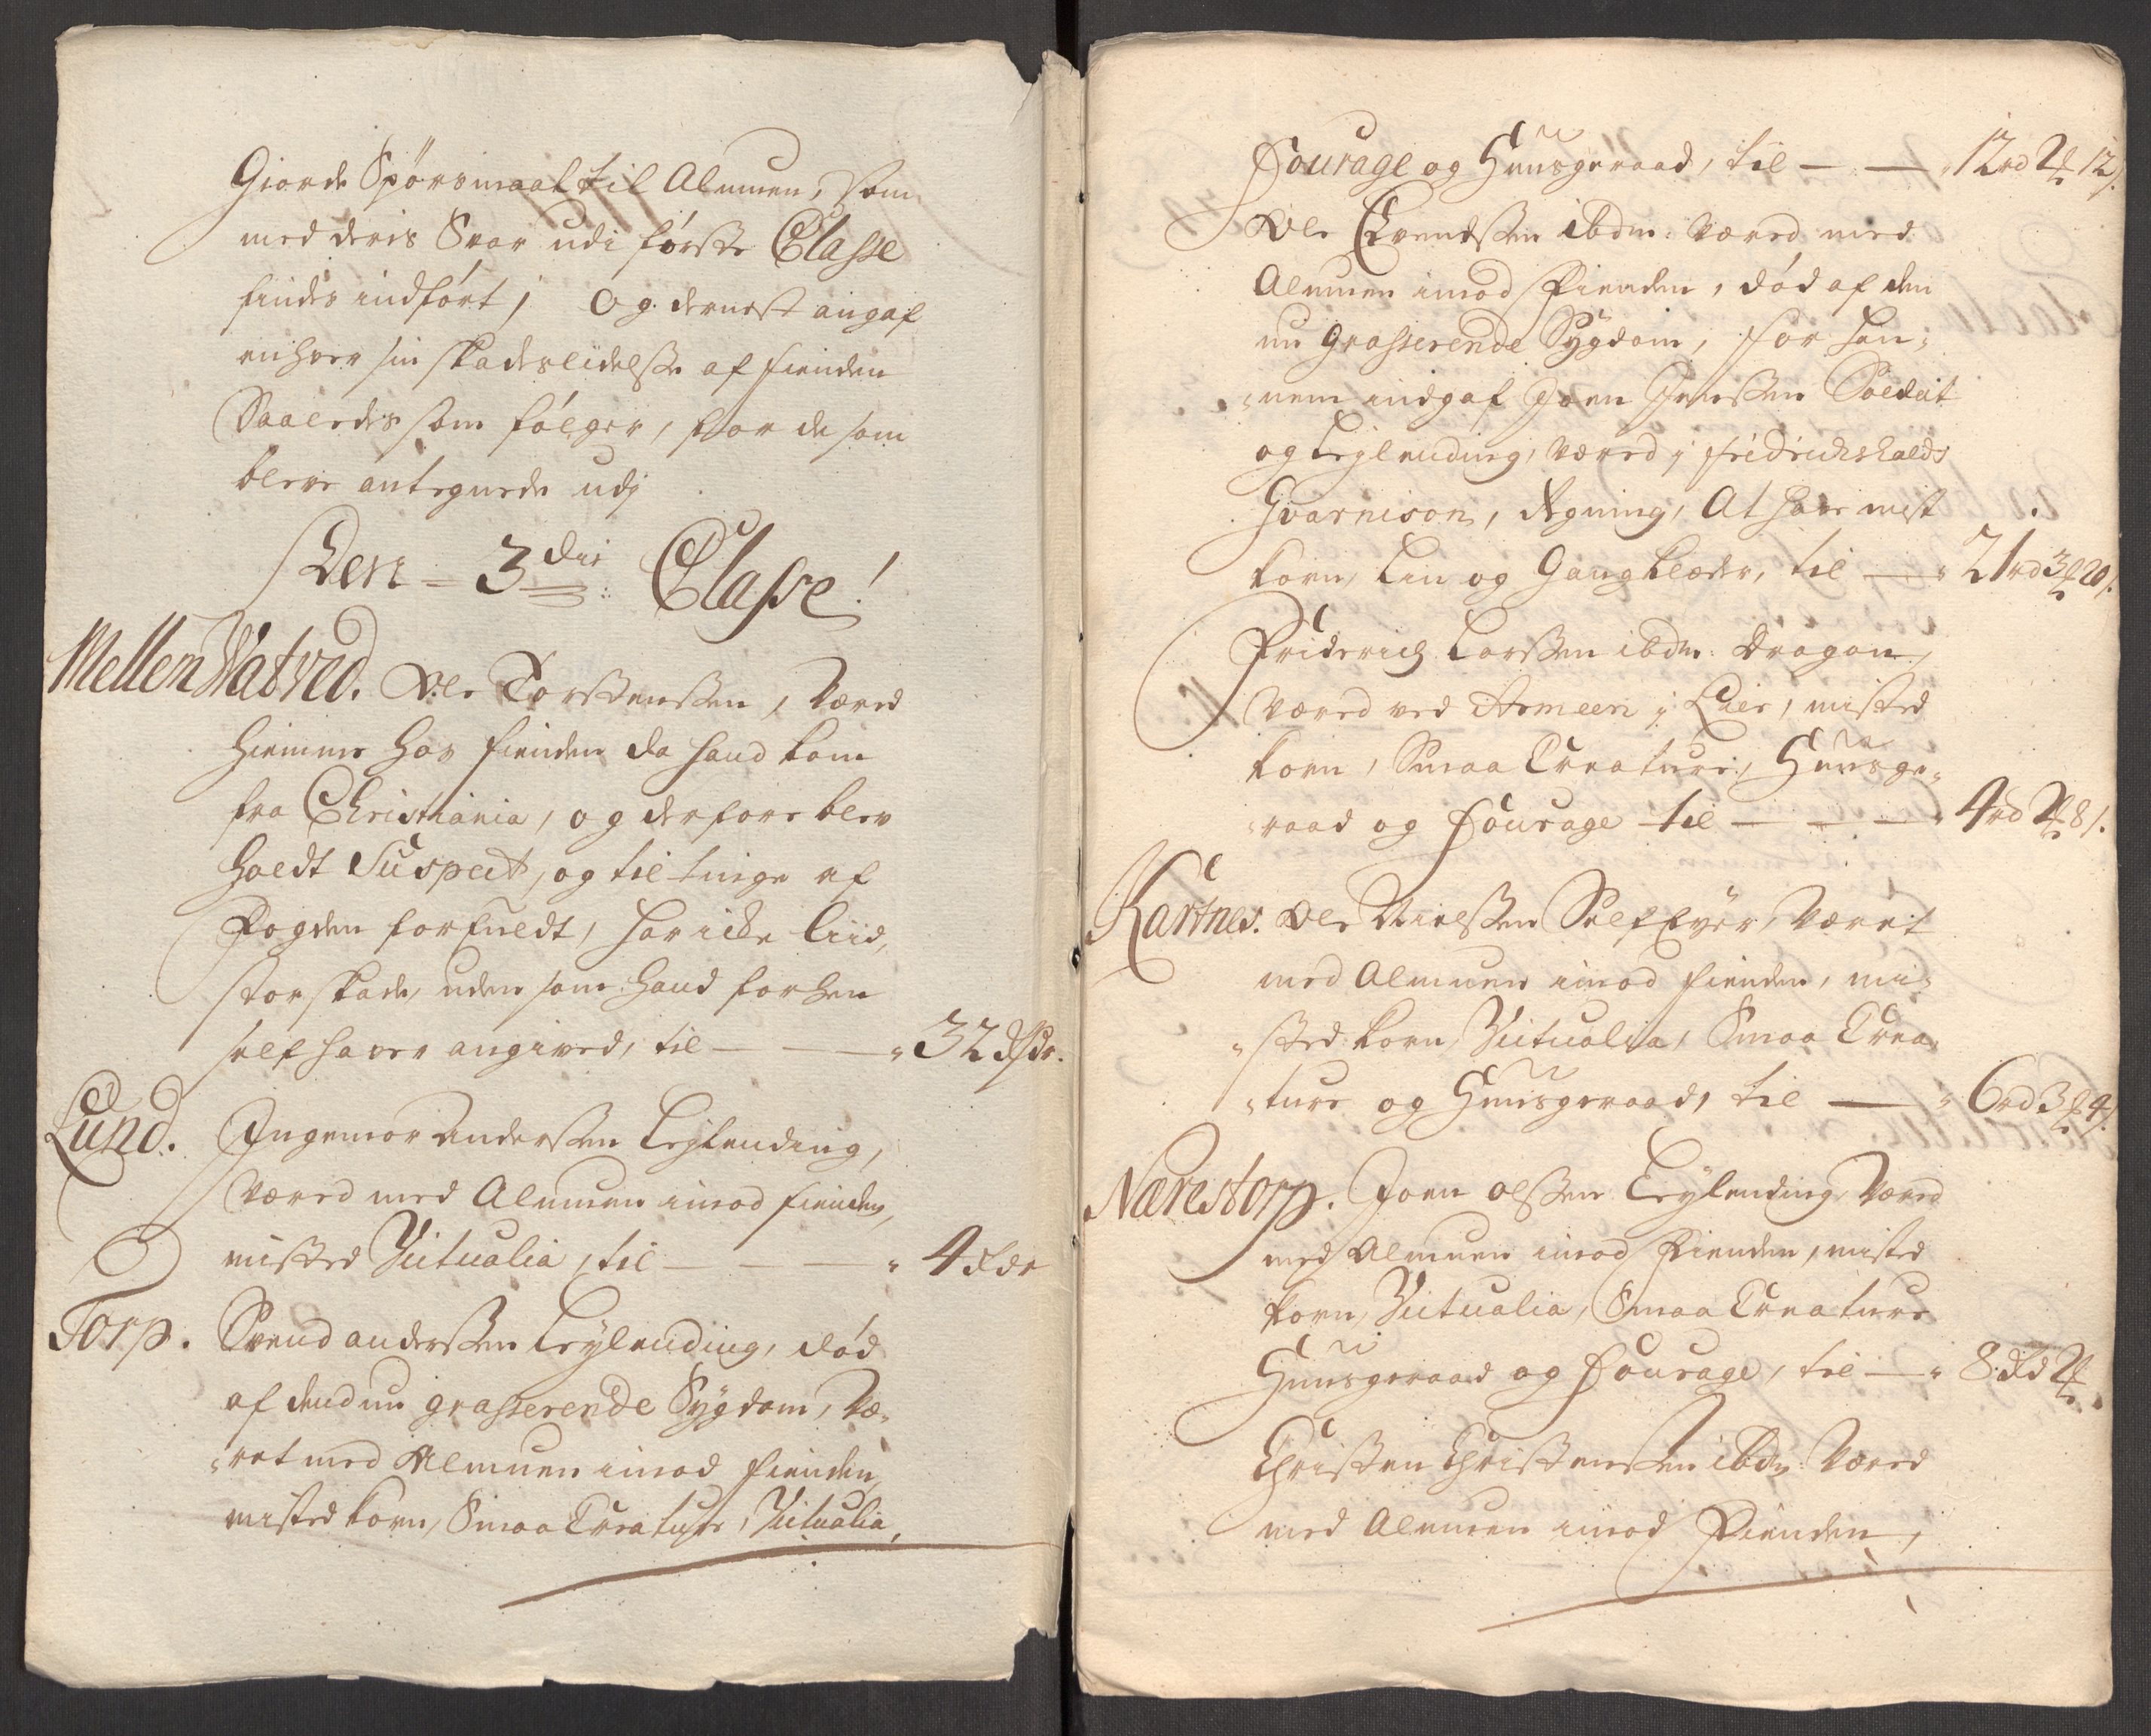 Giorde Spörsmaal til Almuen, som
med deris Svar udi förste Classe
findes indfört; Og dernest angaf
enhver sin skadeslidelse af fienden
Saaledes som fölger, for de som
bleve antegnede udj
Den 3die Classe!
Mellem Watved. Ole Torstensen, Vœred
hiemme hos fienden da hand kom
fra Christiania, og derfore blev
holdt Suspect, og til tinge af
Fogden forfuldt, har icke liid,
stor skade, uden som hand forhen
self haver angived, til — — " 32 dlr.
Lund. Ingemor Anderssen Leylending,
Vœred med Almuen imod fienden,
misted Victualia, til — — " 4 rdr
Torp. Svend anderssen Leylending, död
af dend nu grasserende Sygdom, Vœ-
-ret med Almuen imod fienden,
misted korn, Smaa Creature, Victualia,
Fourage og Huusgeraad, til — — " 12 rd 2 12 s.
Ole Evendssen ibdm: Vœred med
Almuen imod Fienden, död af den
nu Grasserende Sygdom, for han-
-nem indgaf Joen Jenssen Soldat
og Leylending, Vœred j Fridrichshalds
Gvarnison, Regning, At have mist
korn, Lin og Gangklœder, til — " 21 rd 3 20 s.
Friderich Larssen ibdm: Dragon,
Vœred ved Armeen j Lier, misted
korn, Smaa Creature, Huusge-
-raad og Fourage til — — — " 4 rd 2 8 s.
Kartnes. Ole Nielssen Self Eyer, Vœret
med Almuen imod fienden, mi-
-sted korn, Victualia, Smaa Crea-
-ture og Huusgeraad, til — " 6 rd 3 4 s.
Nœrestorp. Joen olssen Leylending Vœred
med Almuen imod Fienden, misted
korn, Victualia, Smaa Creature
Huusgeraad og Fourage, til — " 8 rd 2
Christen Christenssen ibdm: Vœred
med Almuen imod Fienden,